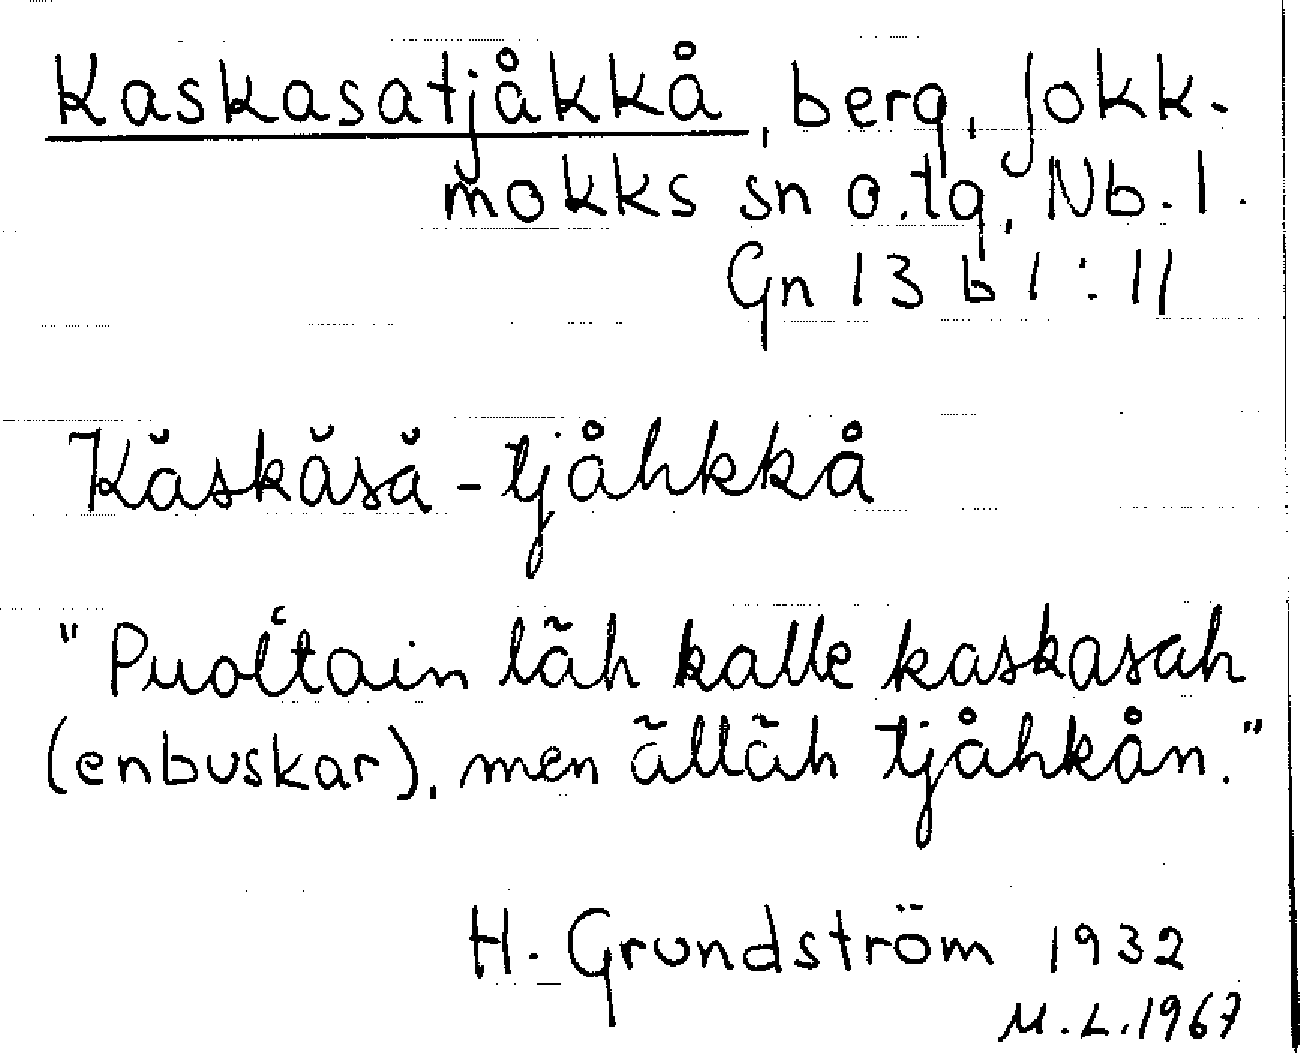 Kaskasatjåkkå, berg, Jokk-
mokks sn o. tg, Nb. l.
Gn 13 b 1 : 11
Kăskăsă-tjåhkkå
"Puolʻtain lãh kalle kaskasah
(enbuskar), men ãllãh tjåhkån."
H. Grundström 1932
M.L. 1967